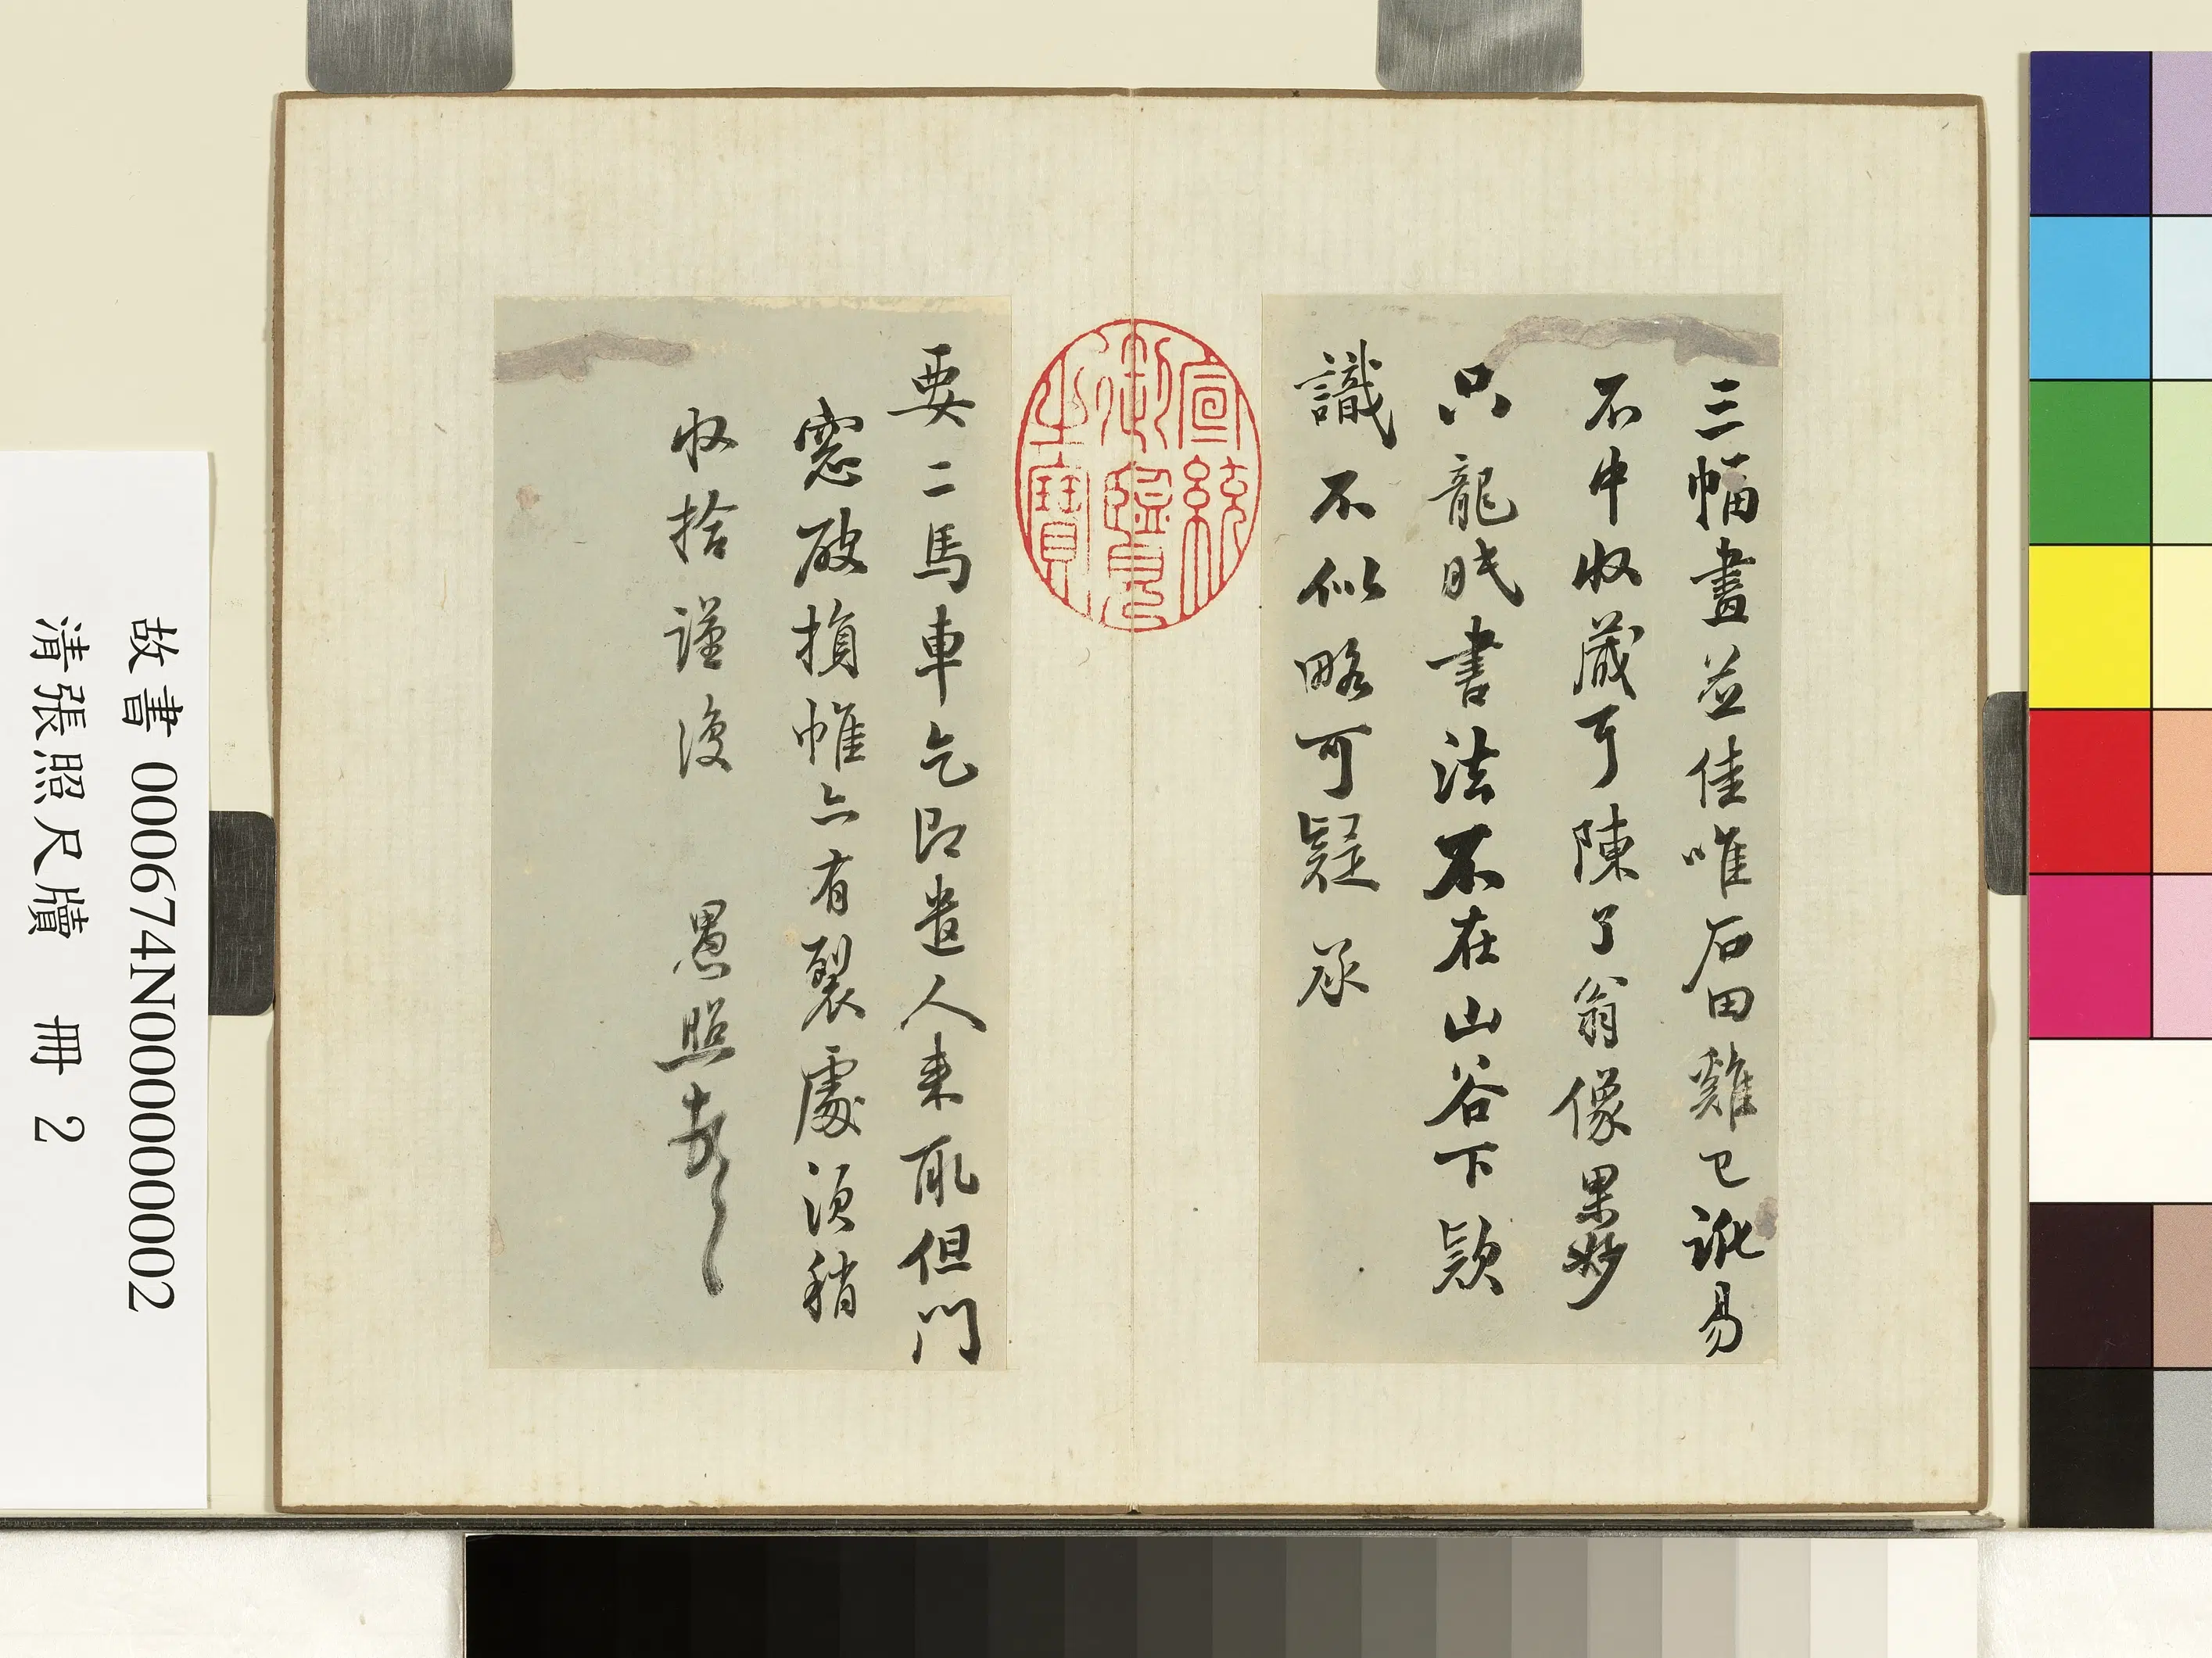 三幅畫並佳唯石田雞已訛易
不中收藏耳陳了翁像果妙
只龍眠書法不在山谷下款
識不似略可疑承
宣統
御覽
之寶
要二馬車乞即遣人来取但門
窓破損帷亦有裂處須稍
收拾謹復 愚照
故書 000674N000000002
清張照尺牘 冊 2